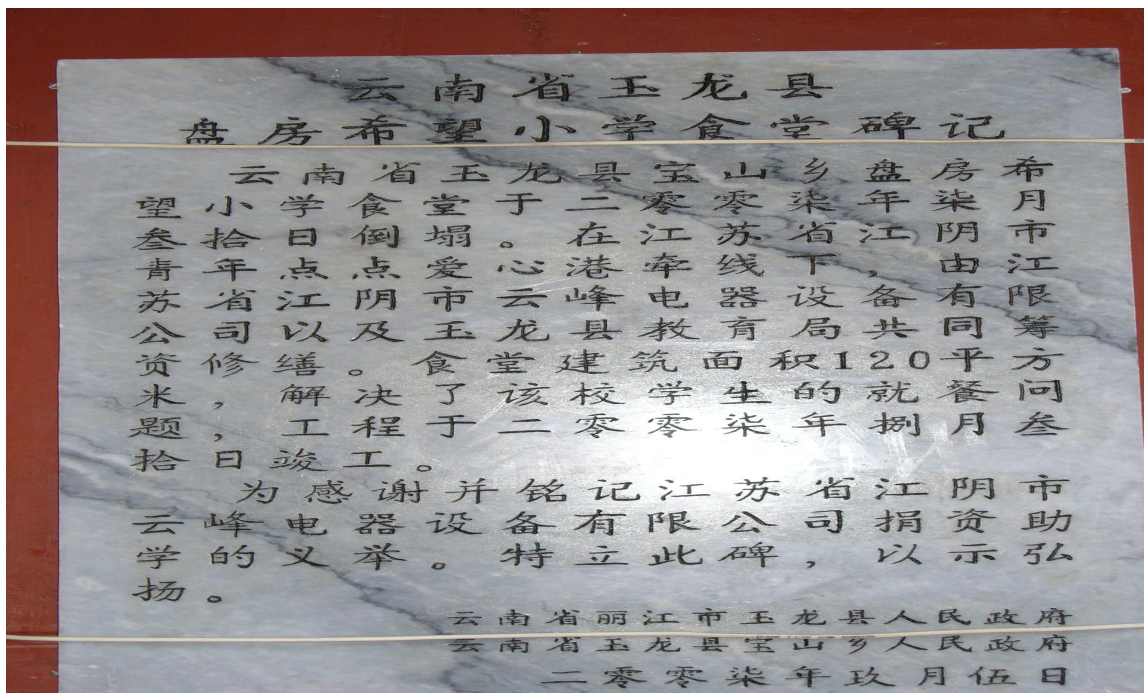 云南省玉龙县
盘房希望小学食堂碑记
云南省玉龙县宝山乡盘房希
望小学食堂于二零零柒年柒月
叁拾日倒塌。在江苏省江阴市
青年点点爱心港牵线下，由江
苏省江阴市云峰电器设备有限
公司以及玉龙县教育局共同筹
资修缮。食堂建筑面积120平方
米，解决了该校学生的就餐问
题，工程于二零零柒年捌月叁
拾日竣工。
为感谢并铭记江苏省江阴市
云峰电器设备有限公司捐资助
学的义举。特立此碑，以示弘
扬。
云南省丽江市玉龙县人民政府
云南省玉龙县宝山乡人民政府
二零零柒年玖月伍日